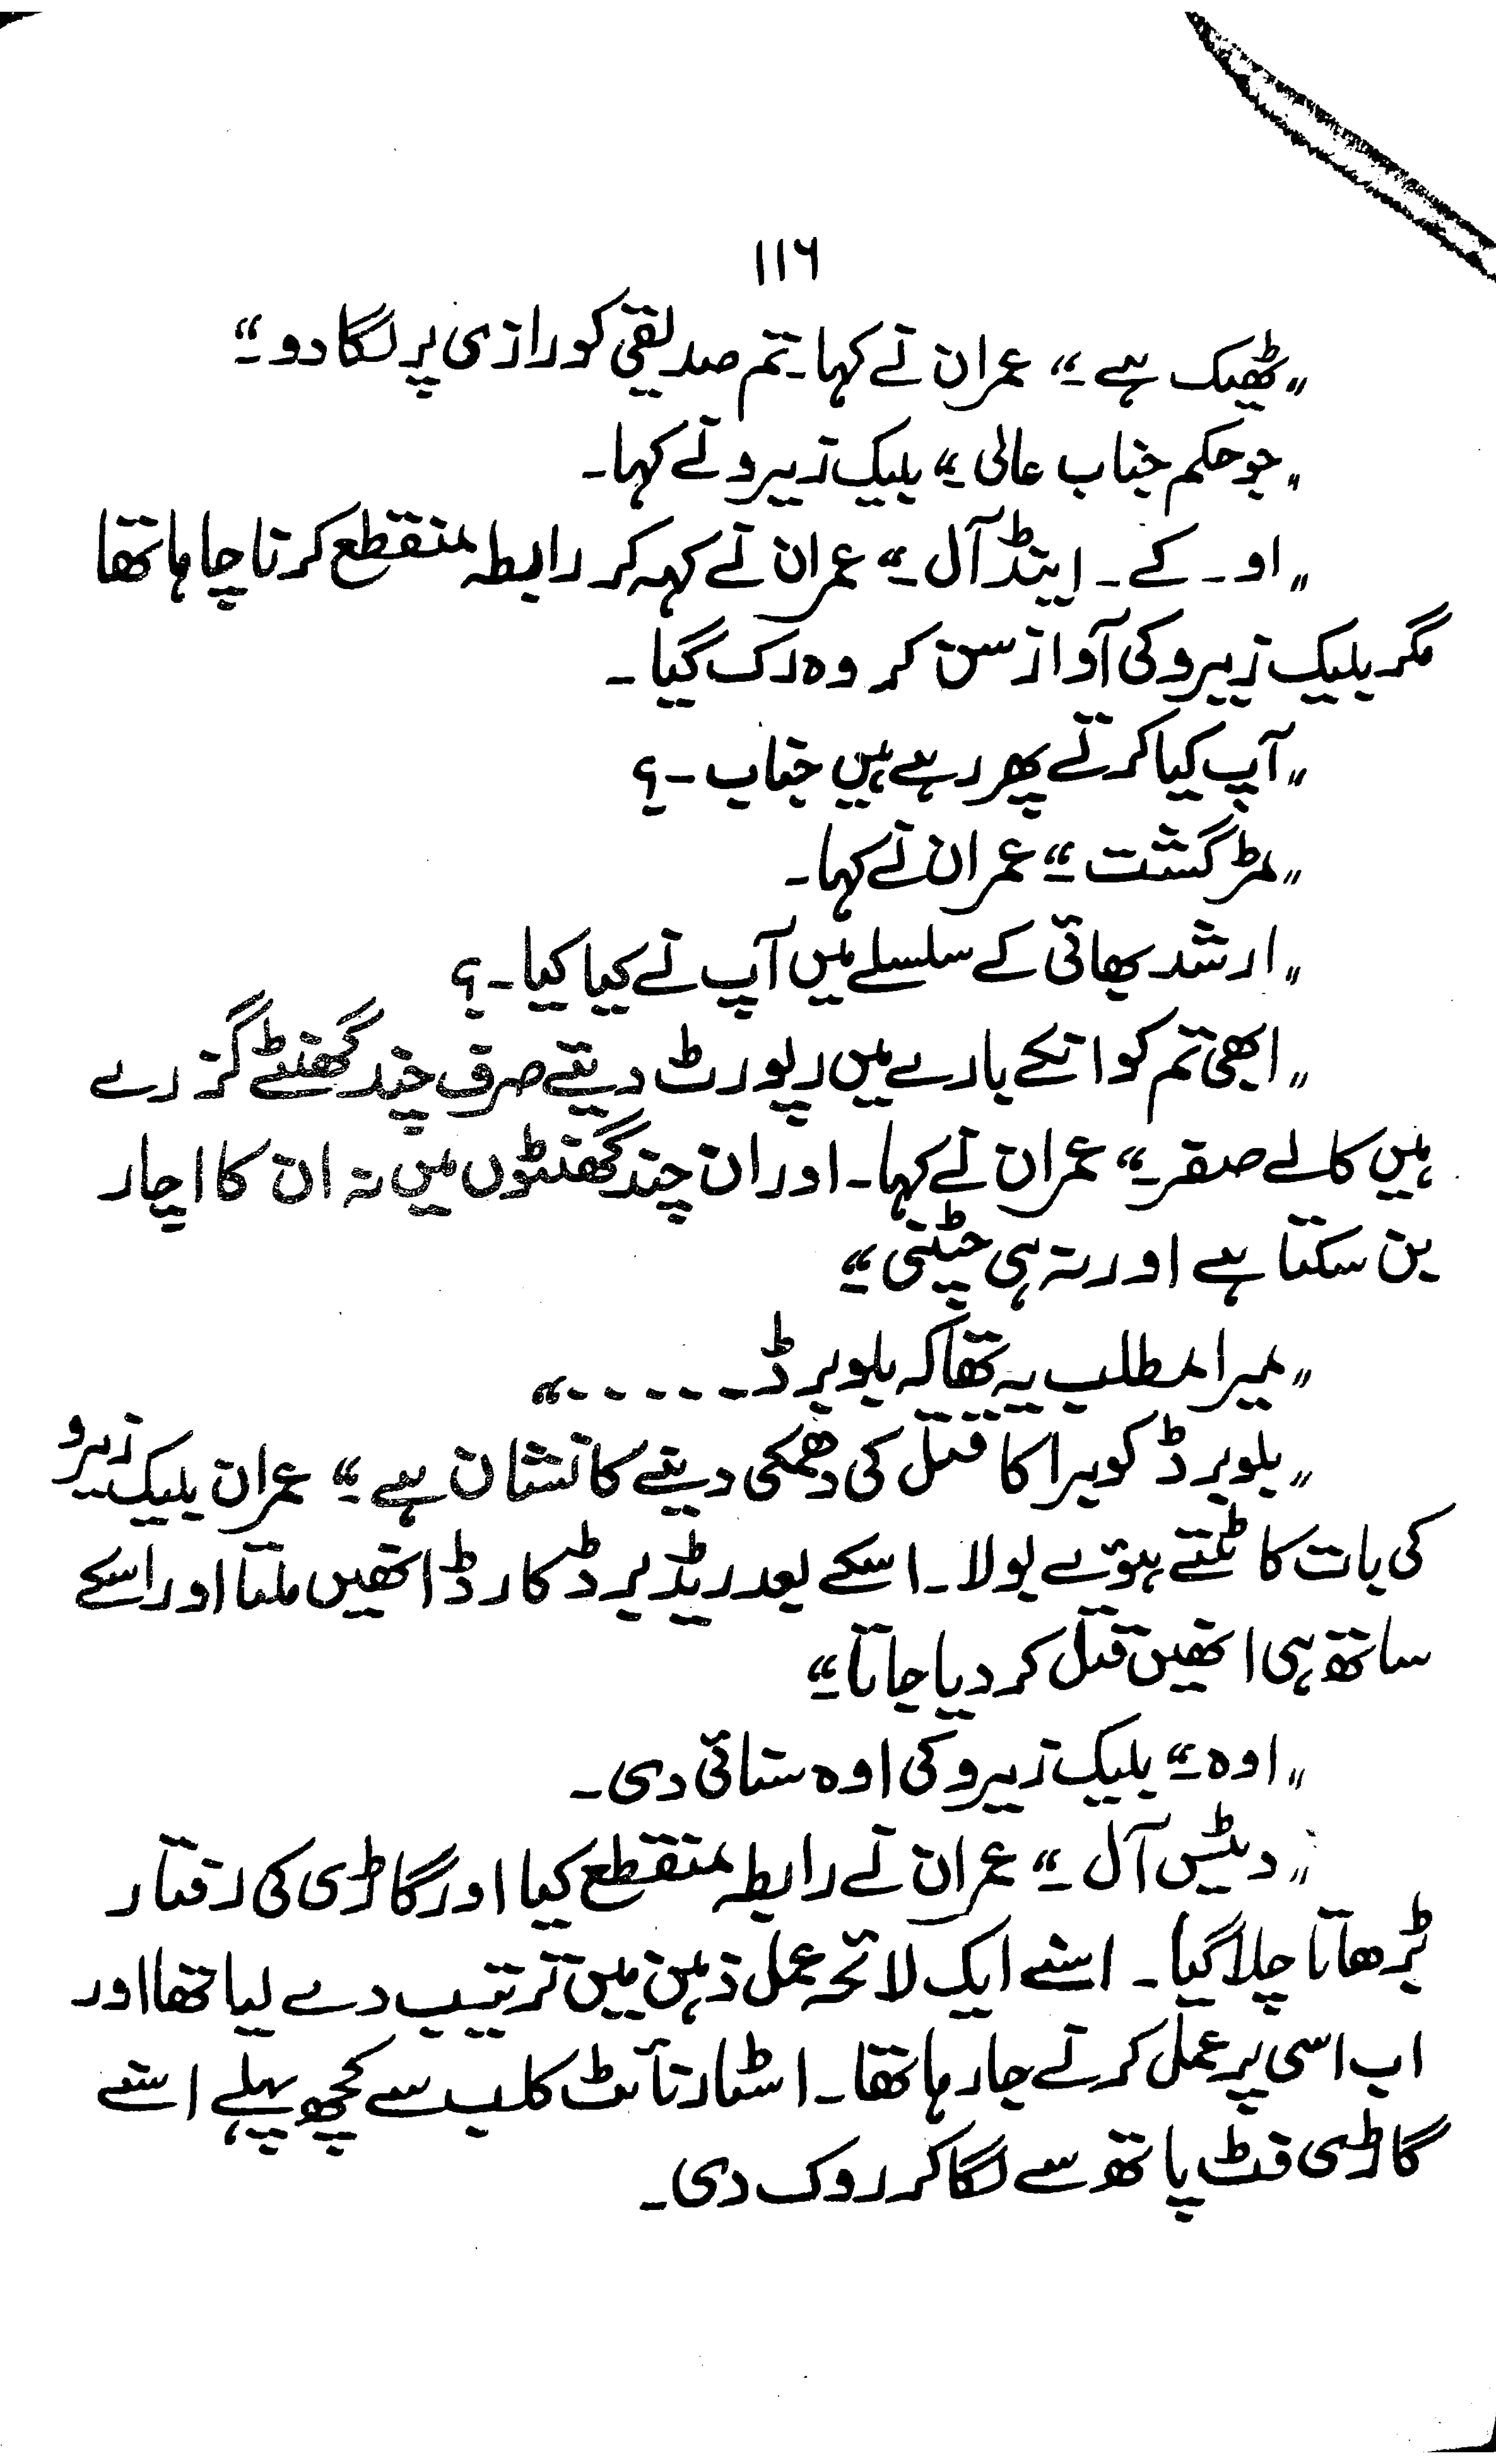 ۱۱۶
„ ٹھیک ہے ۔“ عمران نے کہا۔ تم صدیقی کو رازی پر لگا دو ۔“
„ جو حکم جناب عالی ۔“ بلیک زیرو نے کہا۔
„ او۔ کے۔ اینڈ آل ۔“ عمران نے کہہ کر رابطہ منقطع کرنا چاہا تھا
مگر بلیک زیرو کی آواز سن کر وہ رک گیا ۔
„ آپ کیا کرتے پھر رہے ہیں جناب ۔؟
„ مڑ گشت ۔“ عمران نے کہا۔
„ ارشد بھائی کے سلسلے میں آپ نے کیا کیا ۔؟
„ ابھی تم کو انکے بارے میں رپورٹ دیتے صرف چند گھنٹے گزرے
ہیں کالے صفر ۔“ عمران نے کہا۔ اور ان چند گھنٹوں میں نہ ان کا اچار
بن سکتا ہے اور نہ ہی چٹنی ۔“
„ میرا مطلب یہ تھا کہ بلوبرڈ ۔ ۔ ۔ ۔ ۔ ۔“
„ بلوبرڈ کوبرا کا قتل کی دھمکی دینے کا نشان ہے ۔“ عمران بلیک زیرو
کی بات کاٹتے ہوئے بولا۔ اسکے بعد ریڈ برڈ کارڈ انھیں ملتا اور اسکے
ساتھ ہی انھیں قتل کر دیا جاتا ۔“
„ اوہ ۔“ بلیک زیرو کی اوہ سنائی دی۔
„ دیٹس آل ۔“ عمران نے رابطہ منقطع کیا اور گاڑی کی رفتار
بڑھاتا چلا گیا ۔ اسنے ایک لائحہ عمل ذہن میں ترتیب دے لیا تھا اور
اب اسی پر عمل کرنے جا رہا تھا۔ اسٹار نائٹ کلب سے کچھ پہلے اسنے
گاڑی فٹ پاتھ سے لگا کر روک دی۔